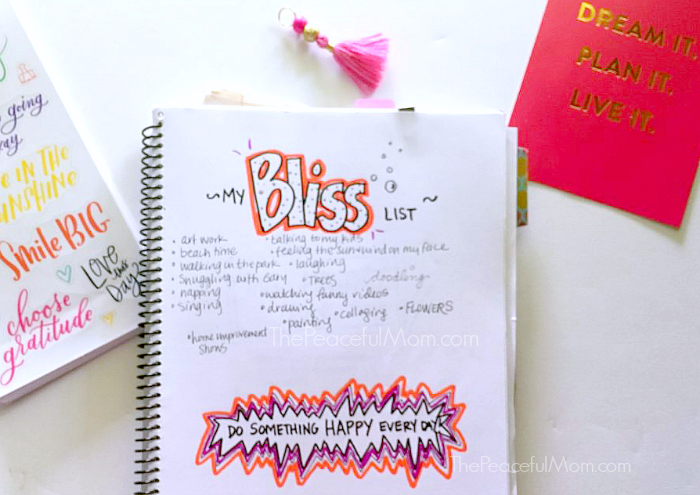 going
day
IN THE
SUNSHINE
SMILE BIG
LOVE this
Day
choose
gratitude
DREAM IT.
PLAN IT.
LIVE IT.
~MY Bliss LIST~
• art work
• beach time
• walking in the park
• snuggling with Gary
• napping
• singing
• home improvement
shows
• talking to my kids
• feeling the sun + wind on my face
• laughing
• TREES
doodling
• watching funny videos
• drawing
• collaging
• FLOWERS
• painting
ThePeacefulMom.com
DO SOMETHING HAPPY EVERY DAY
ThePeacefulMom.com